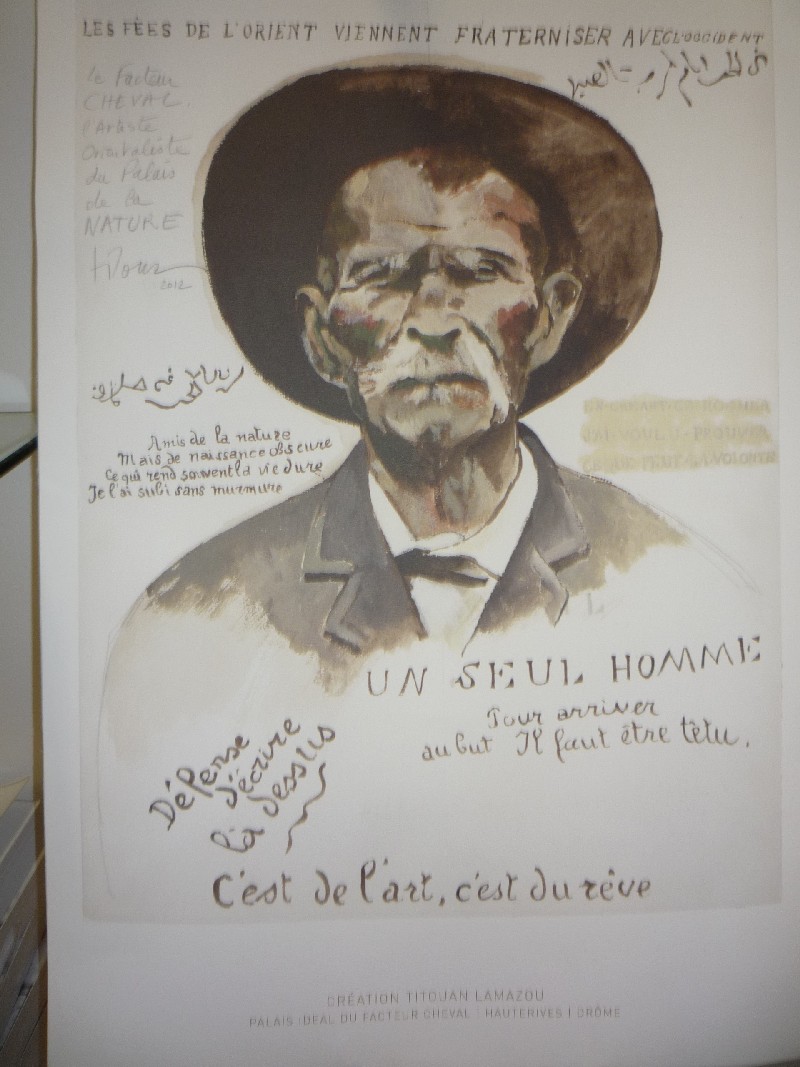 LES FÉES DE L'ORIENT VIENNENT FRATERNISER AVEC L'OCCIDENT
le Facteur
CHEVAL.
l'Artiste
Orientaliste
du Palais
de la
NATURE
2012
Amis de la nature
Mais de naissance obscure
Ce qui rend souvent la vie dure
Je l'ai subi sans murmure
EN CREANT CE ROCHER
J'AI VOULU PROUVER
CE QUE PEUT LA VOLONTÉ
UN SEUL HOMME
Pour arriver
au but Il faut être têtu.
Défense
d'écrire
là dessus
C'est de l'art, c'est du rêve
CRÉATION TITOUAN LAMAZOU
PALAIS IDÉAL DU FACTEUR CHEVAL | HAUTERIVES | DRÔME